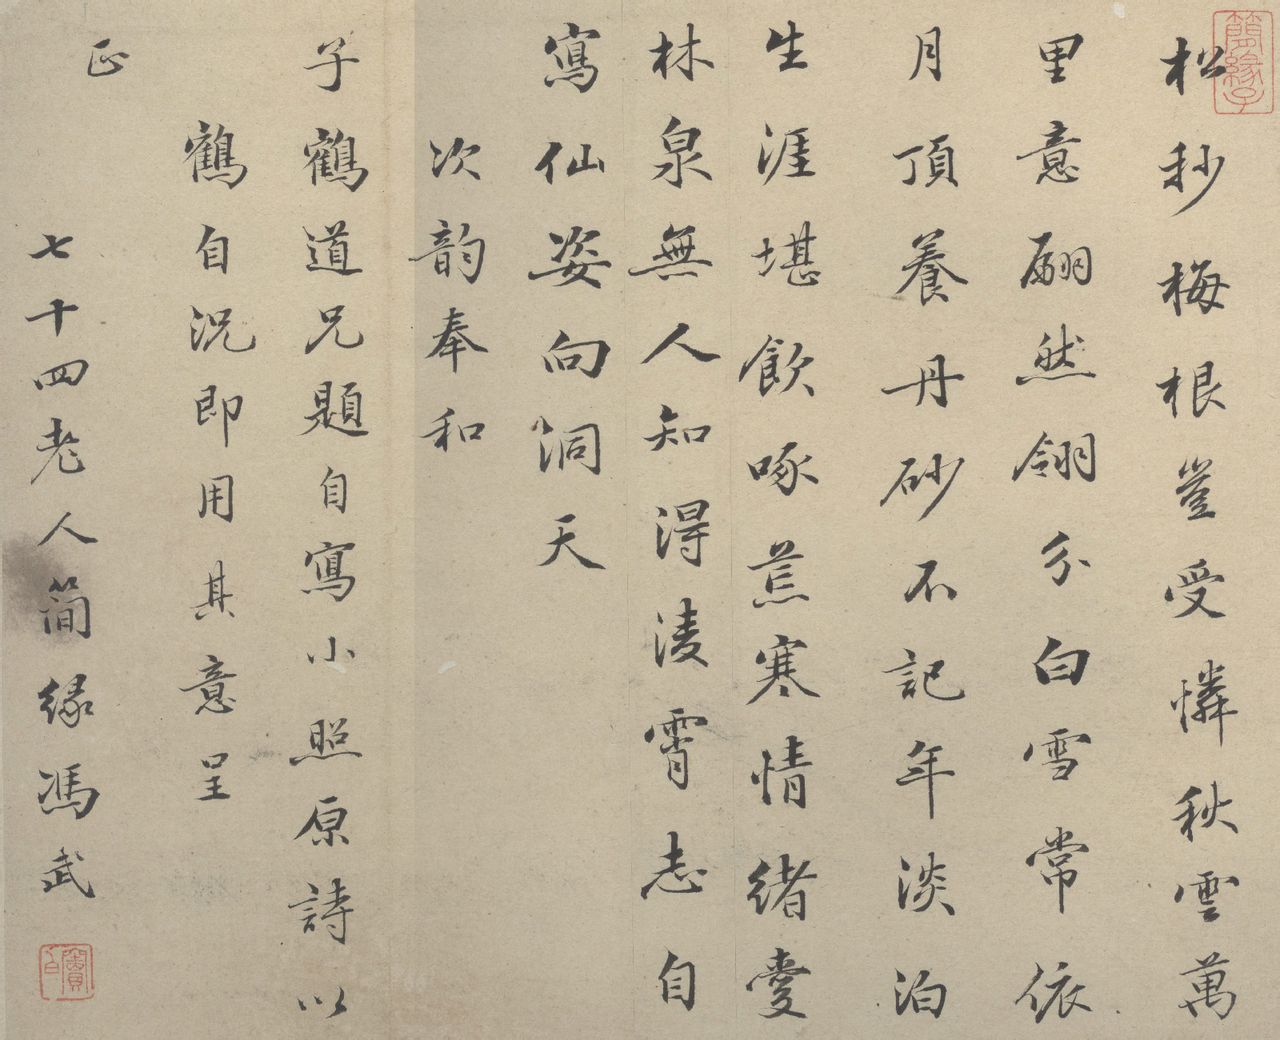 簡緣子
松杪梅根豈受憐秋雲萬
里意翩然翎分白雪常依
月頂養丹砂不記年淡泊
生涯堪飲啄荒寒情緒愛
林泉無人知得淩霄志自
寫仙姿向洞天
次韵奉和
子鶴道兄題自寫小照原詩以
鶴自況即用其意呈
正
七十四老人簡緣馮武
竇伯